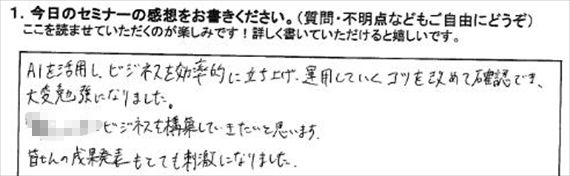 1. 今日のセミナーの感想をお書きください。(質問・不明点などもご自由にどうぞ)
ここを読ませていただくのが楽しみです!詳しく書いていただけると嬉しいです。
AIを活用し、ビジネスを効率的に立ち上げ、運用していくコツを改めて確認でき、
大変勉強になりました。
ビジネスを構築していきたいと思います。
皆さんの成果発表もとても刺激になりました。